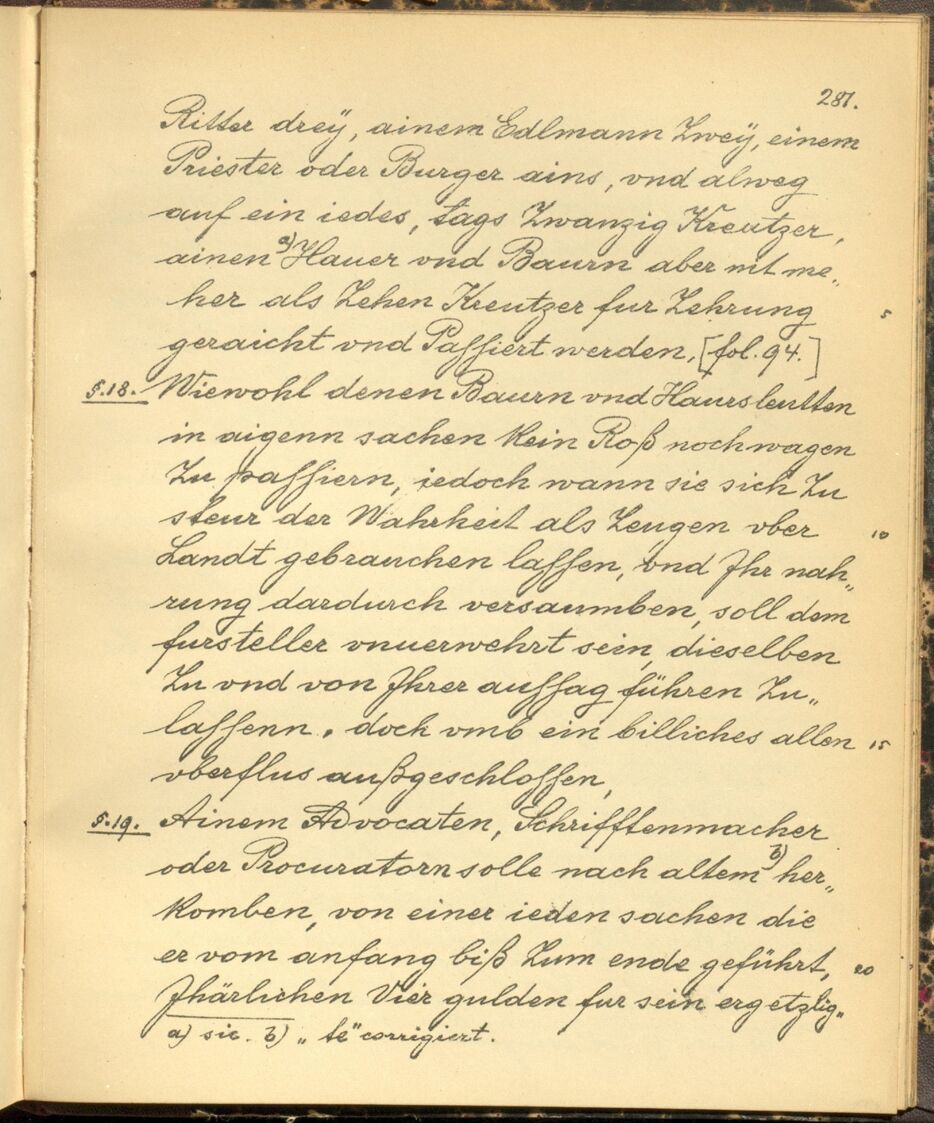 281.
Ritter dreÿ, ainem Edlmann Zweÿ, einem
Priester oder Burger ains, vnd alweg
auf ein iedes, tags Zwanzig Kreutzer,
ainen a) Hauer vnd Baurn aber nit me„
her als Zehen Kreutzer fur Zehrung 5
geraicht vnd Passiert werden, [fol. 94.]
§.18. Wiewohl denen Baurn vnd Haursleutten
in aigenn sachen Kein Roß noch wagen
Zu passiern, iedoch wann sie sich Zu
steur der Wahrheit als Zeugen vber 10
Landt gebrauchen lassen, vnd Ihr nah„
rung dardurch versaumben, soll dem
fursteller vnuerwehrt sein, dieselben
Zu vnd von Ihrer aussag führen Zu„
lassenn. doch vmb ein billiches allen 15
vberflus außgeschlossen,
§.19. Ainem Advocaten, Schrifftenmacher
oder Procuratorn solle nach altem b) her„
Komben, von einer ieden sachen die
er vom anfang biß Zum ende geführt, 20
Jhärlichen Vier gulden fur sein ergetzlig„
a) sic. b) „te" corrigiert.